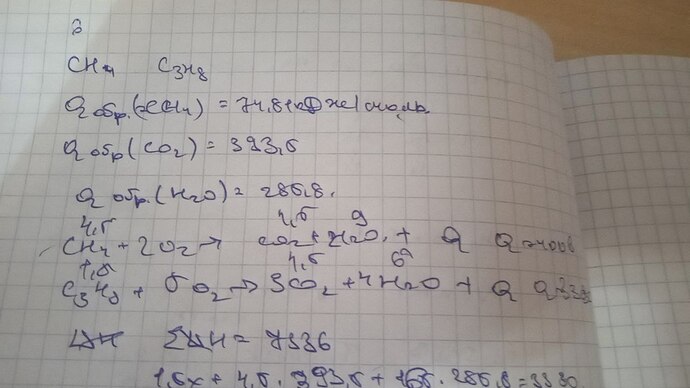 CH4 C3H8
Qобр.(CH4) = 74,8 кДж/моль
Qобр(CO2) = 393,5
Qобр.(H2O) = 285,8.
4,5 4,5 9
CH4 + 2O2 → CO2 + 2H2O + Q
1,5 4,5 6
C3H8 + 5O2 → 3CO2 + 4H2O + Q
ΣΔH = 7336
1,5x + 4,5 · 393,5 + · 285,8 = 3330